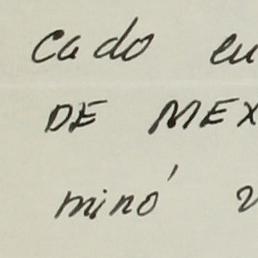 cado en
DE MEX
minó